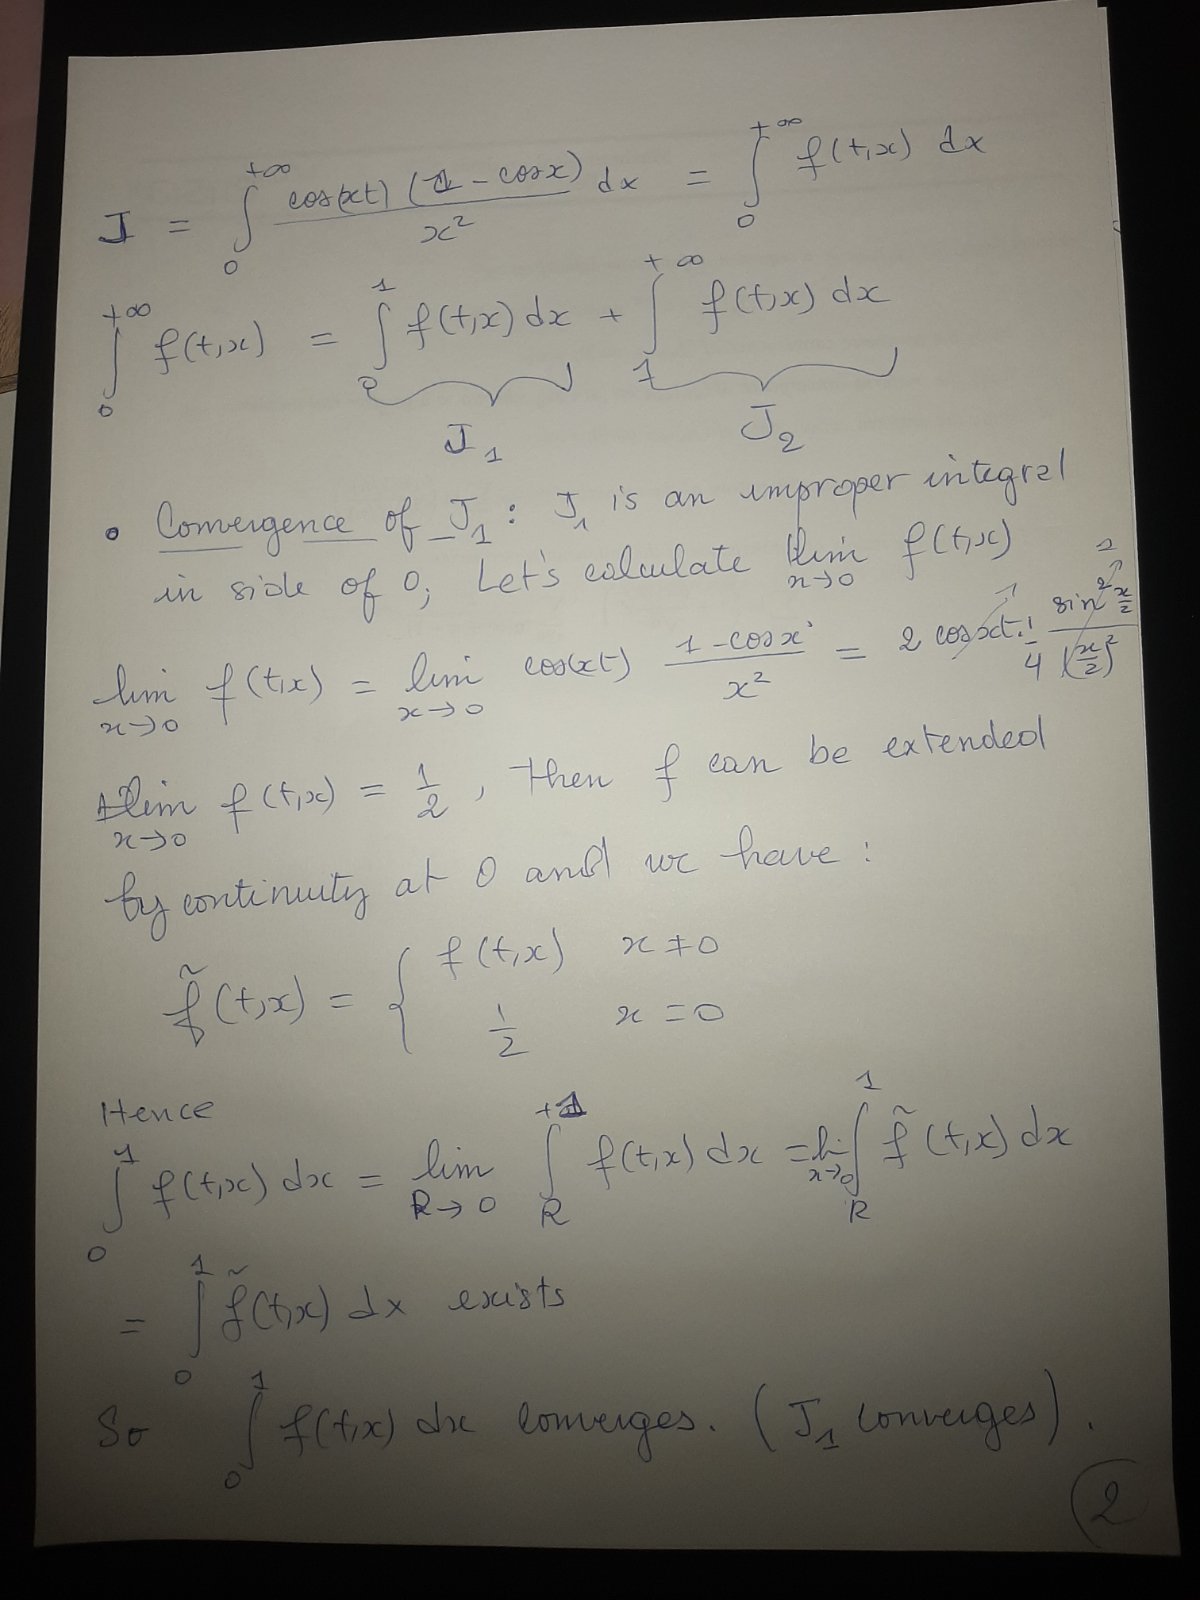 J = ∫_0^{+∞} cos(xt) (1 - cos x) / x² dx = ∫_0^{+∞} f(t,x) dx
∫_0^{+∞} f(t,x) = ∫_0^1 f(t,x) dx + ∫_1^{+∞} f(t,x) dx
J_1 J_2
• Convergence of J_1 : J_1 is an improper integral
in side of 0; Let's calculate lim_{x→0} f(t,x)
lim_{x→0} f(t,x) = lim_{x→0} cos(xt) (1 - cos x) / x² = 2 cos xt . 1/4 sin² x/2 / (x/2)²
lim_{x→0} f(t,x) = 1/2 , then f can be extended
by continuity at 0 and we have :
f̃(t,x) = { f(t,x) x ≠ 0
1/2 x = 0
Hence
∫_0^1 f(t,x) dx = lim_{R→0} ∫_R^{+1} f(t,x) dx = li_{x→0} ∫_R^1 f̃(t,x) dx
= ∫_0^1 f̃(t,x) dx exists
So ∫_0^1 f(t,x) dx converges. (J_1 converges).
2